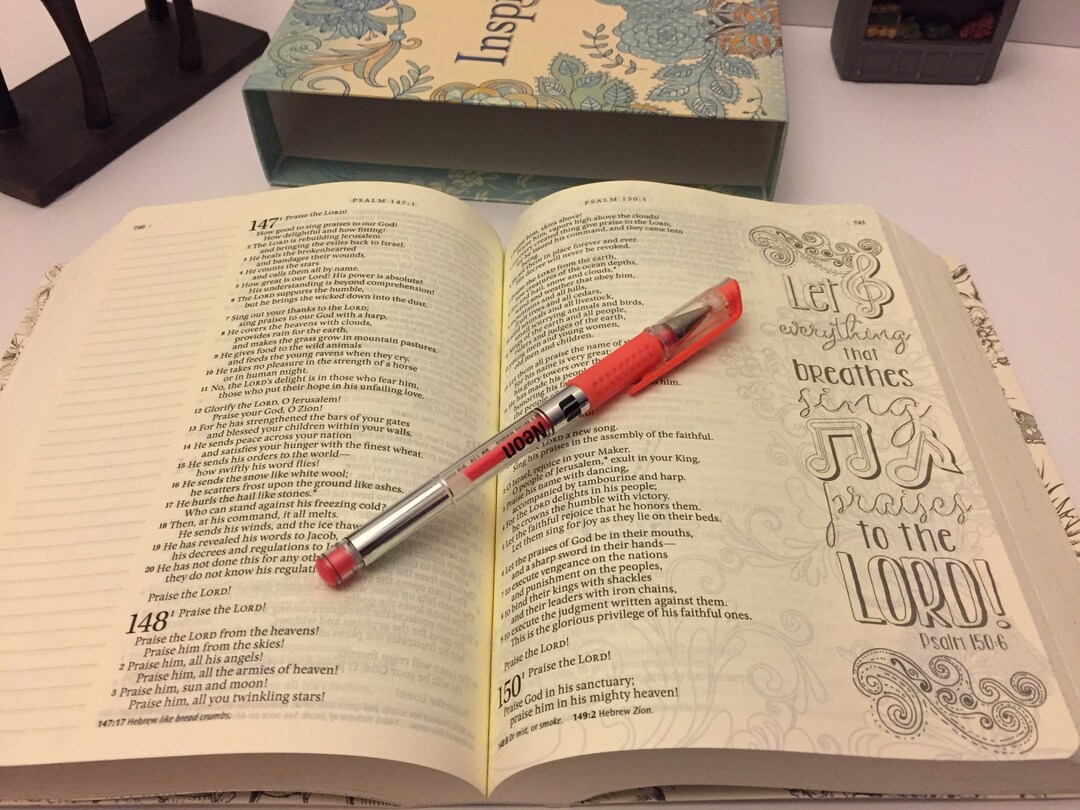 Insp
PSALM 147:1
740
147 1 Praise the LORD!
How good to sing praises to our God!
How delightful and how fitting!
2 The LORD is rebuilding Jerusalem
and bringing the exiles back to Israel.
3 He heals the brokenhearted
and bandages their wounds.
4 He counts the stars
and calls them all by name.
5 How great is our Lord! His power is absolute!
His understanding is beyond comprehension!
6 The LORD supports the humble,
but he brings the wicked down into the dust.
7 Sing out your thanks to the LORD;
sing praises to our God with a harp.
8 He covers the heavens with clouds,
provides rain for the earth,
and makes the grass grow in mountain pastures.
9 He gives food to the wild animals
and feeds the young ravens when they cry.
10 He takes no pleasure in the strength of a horse
or in human might.
11 No, the LORD's delight is in those who fear him,
those who put their hope in his unfailing love.
12 Glorify the LORD, O Jerusalem!
Praise your God, O Zion!
13 For he has strengthened the bars of your gates
and blessed your children within your walls.
14 He sends peace across your nation
and satisfies your hunger with the finest wheat.
15 He sends his orders to the world—
how swiftly his word flies!
16 He sends the snow like white wool;
he scatters frost upon the ground like ashes.
17 He hurls the hail like stones.*
Who can stand against his freezing cold?
18 Then, at his command, it all melts.
He sends his winds, and the ice thaw
19 He has revealed his words to Jacob,
his decrees and regulations to I
20 He has not done this for any oth
they do not know his regulati
Praise the LORD!
148 1 Praise the LORD!
Praise the LORD from the heavens!
Praise him from the skies!
2 Praise him, all his angels!
Praise him, all the armies of heaven!
3 Praise him, sun and moon!
Praise him, all you twinkling stars!
147:17 Hebrew like bread crumbs.
PSALM 150:1
741
him, skies above!
him, vapors high above the clouds!
created thing give praise to the LORD,
he issued his command, and they came into
in place forever and ever.
decree will never be revoked.
the LORD from the earth,
creatures of the ocean depths,
and hail, snow and clouds,*
and weather that obey him,
and all hills,
and all cedars,
and all livestock,
small scurrying animals and birds,
of the earth and all people,
and judges of the earth,
men and young women,
old men and children.
Let them all praise the name of
his name is very great;
his glory towers over the
He has made his people
honoring his
the people
him.
LORD a new song.
Sing his praises in the assembly of the faithful.
O Israel, rejoice in your Maker.
O people of Jerusalem,* exult in your King.
Praise his name with dancing,
accompanied by tambourine and harp.
For the LORD delights in his people;
he crowns the humble with victory.
Let the faithful rejoice that he honors them.
Let them sing for joy as they lie on their beds.
Let the praises of God be in their mouths,
and a sharp sword in their hands—
to execute vengeance on the nations
and punishment on the peoples,
to bind their kings with shackles
and their leaders with iron chains,
to execute the judgment written against them.
This is the glorious privilege of his faithful ones.
Praise the LORD!
150 1 Praise the LORD!
Praise God in his sanctuary;
praise him in his mighty heaven!
Or mist, or smoke. 149:2 Hebrew Zion.
Let
everything
that
breathes
sing
praises
to the
LORD!
Psalm 150:6
Neon